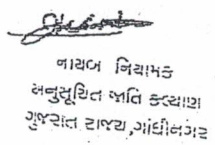 નાયબ નિયામક
અનુસૂચિત જાતિ કલ્યાણ
ગુજરાત રાજ્ય,ગાંધીનગર